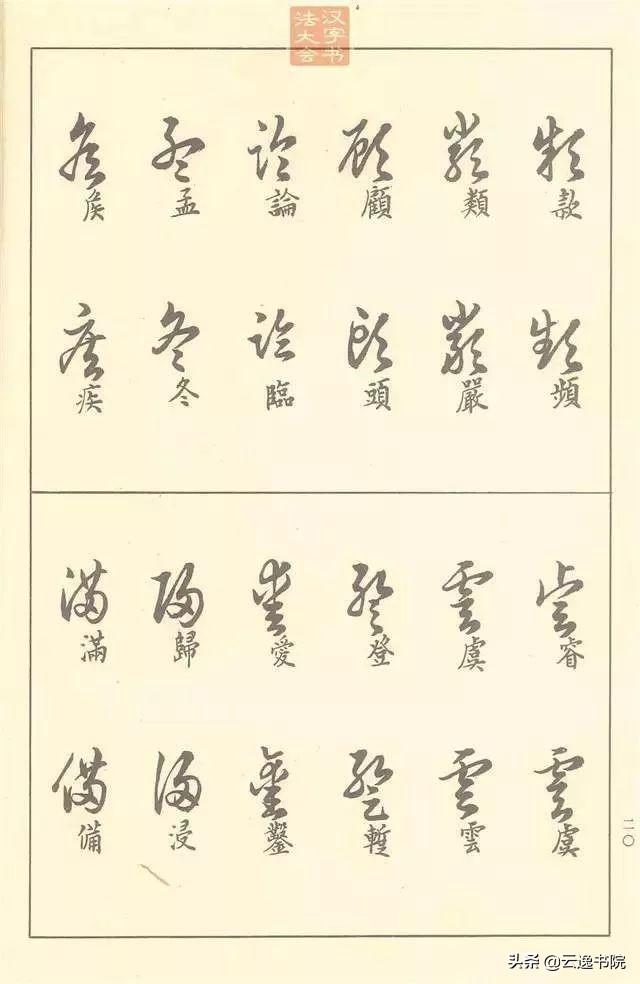 汉字书
法大会
款
頻
類
嚴
顧
頭
論
臨
孟
冬
疾
睿
虞
虞
雲
登
愛
鑿
歸
浸
滿
備
二〇
头条 @云逸书院